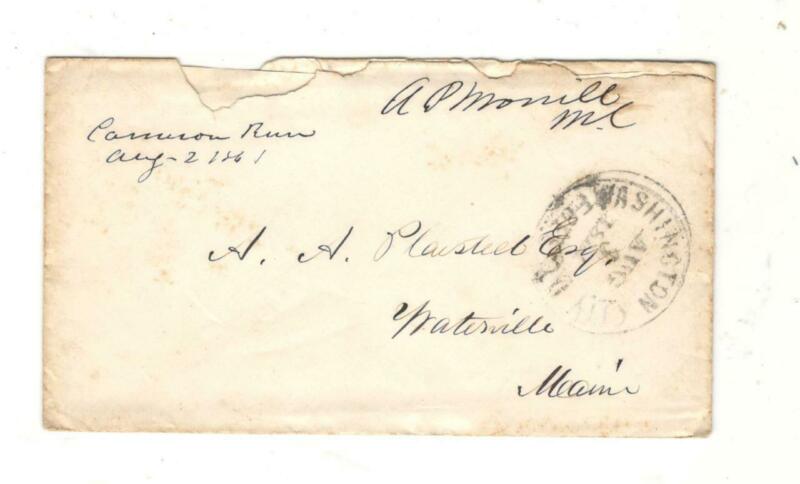 A P Morrill
M.C
Cameron Run
Aug - 2 1861
A. A. Plaisted Esq.
Waterville
Maine
WASHINGTON CITY
AUG